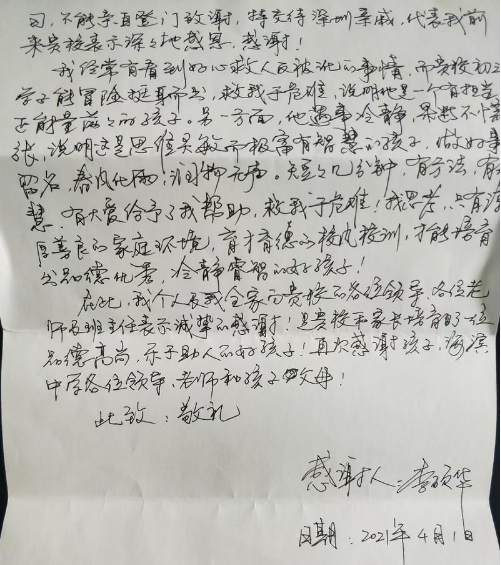 司，不能亲自登门致谢，特交待深圳亲戚，代表我前
来贵校表示深深地感恩，感谢！
我经常有看到好心救人反被讹的事情，而贵校初三
学子能冒险挺身而出，救我于危难，说明他是一个有担当
正能量滋滋的孩子。另一方面，他遇事冷静，果断不慌
张，说明这是思维灵敏而极富有智慧的孩子，做好事
留名，春风化雨，润物无声。短短几分钟，有方法，有
慧，有大爱给予了我帮助，救我于危难！我思考，只有
厚善良的家庭环境，育才育德的校风校训，才能培育
出品德优秀，冷静睿智的好孩子！
在此，我个人及我全家向贵校的各位领导、各位老
师及班主任表示诚挚的感谢！是贵校和家长培育了一位
品德高尚，乐于助人的好孩子！再次感谢孩子，海滨
中学各位领导，老师和孩子父母！
此致：敬礼
感谢人：李华
日期：2021年4月1日